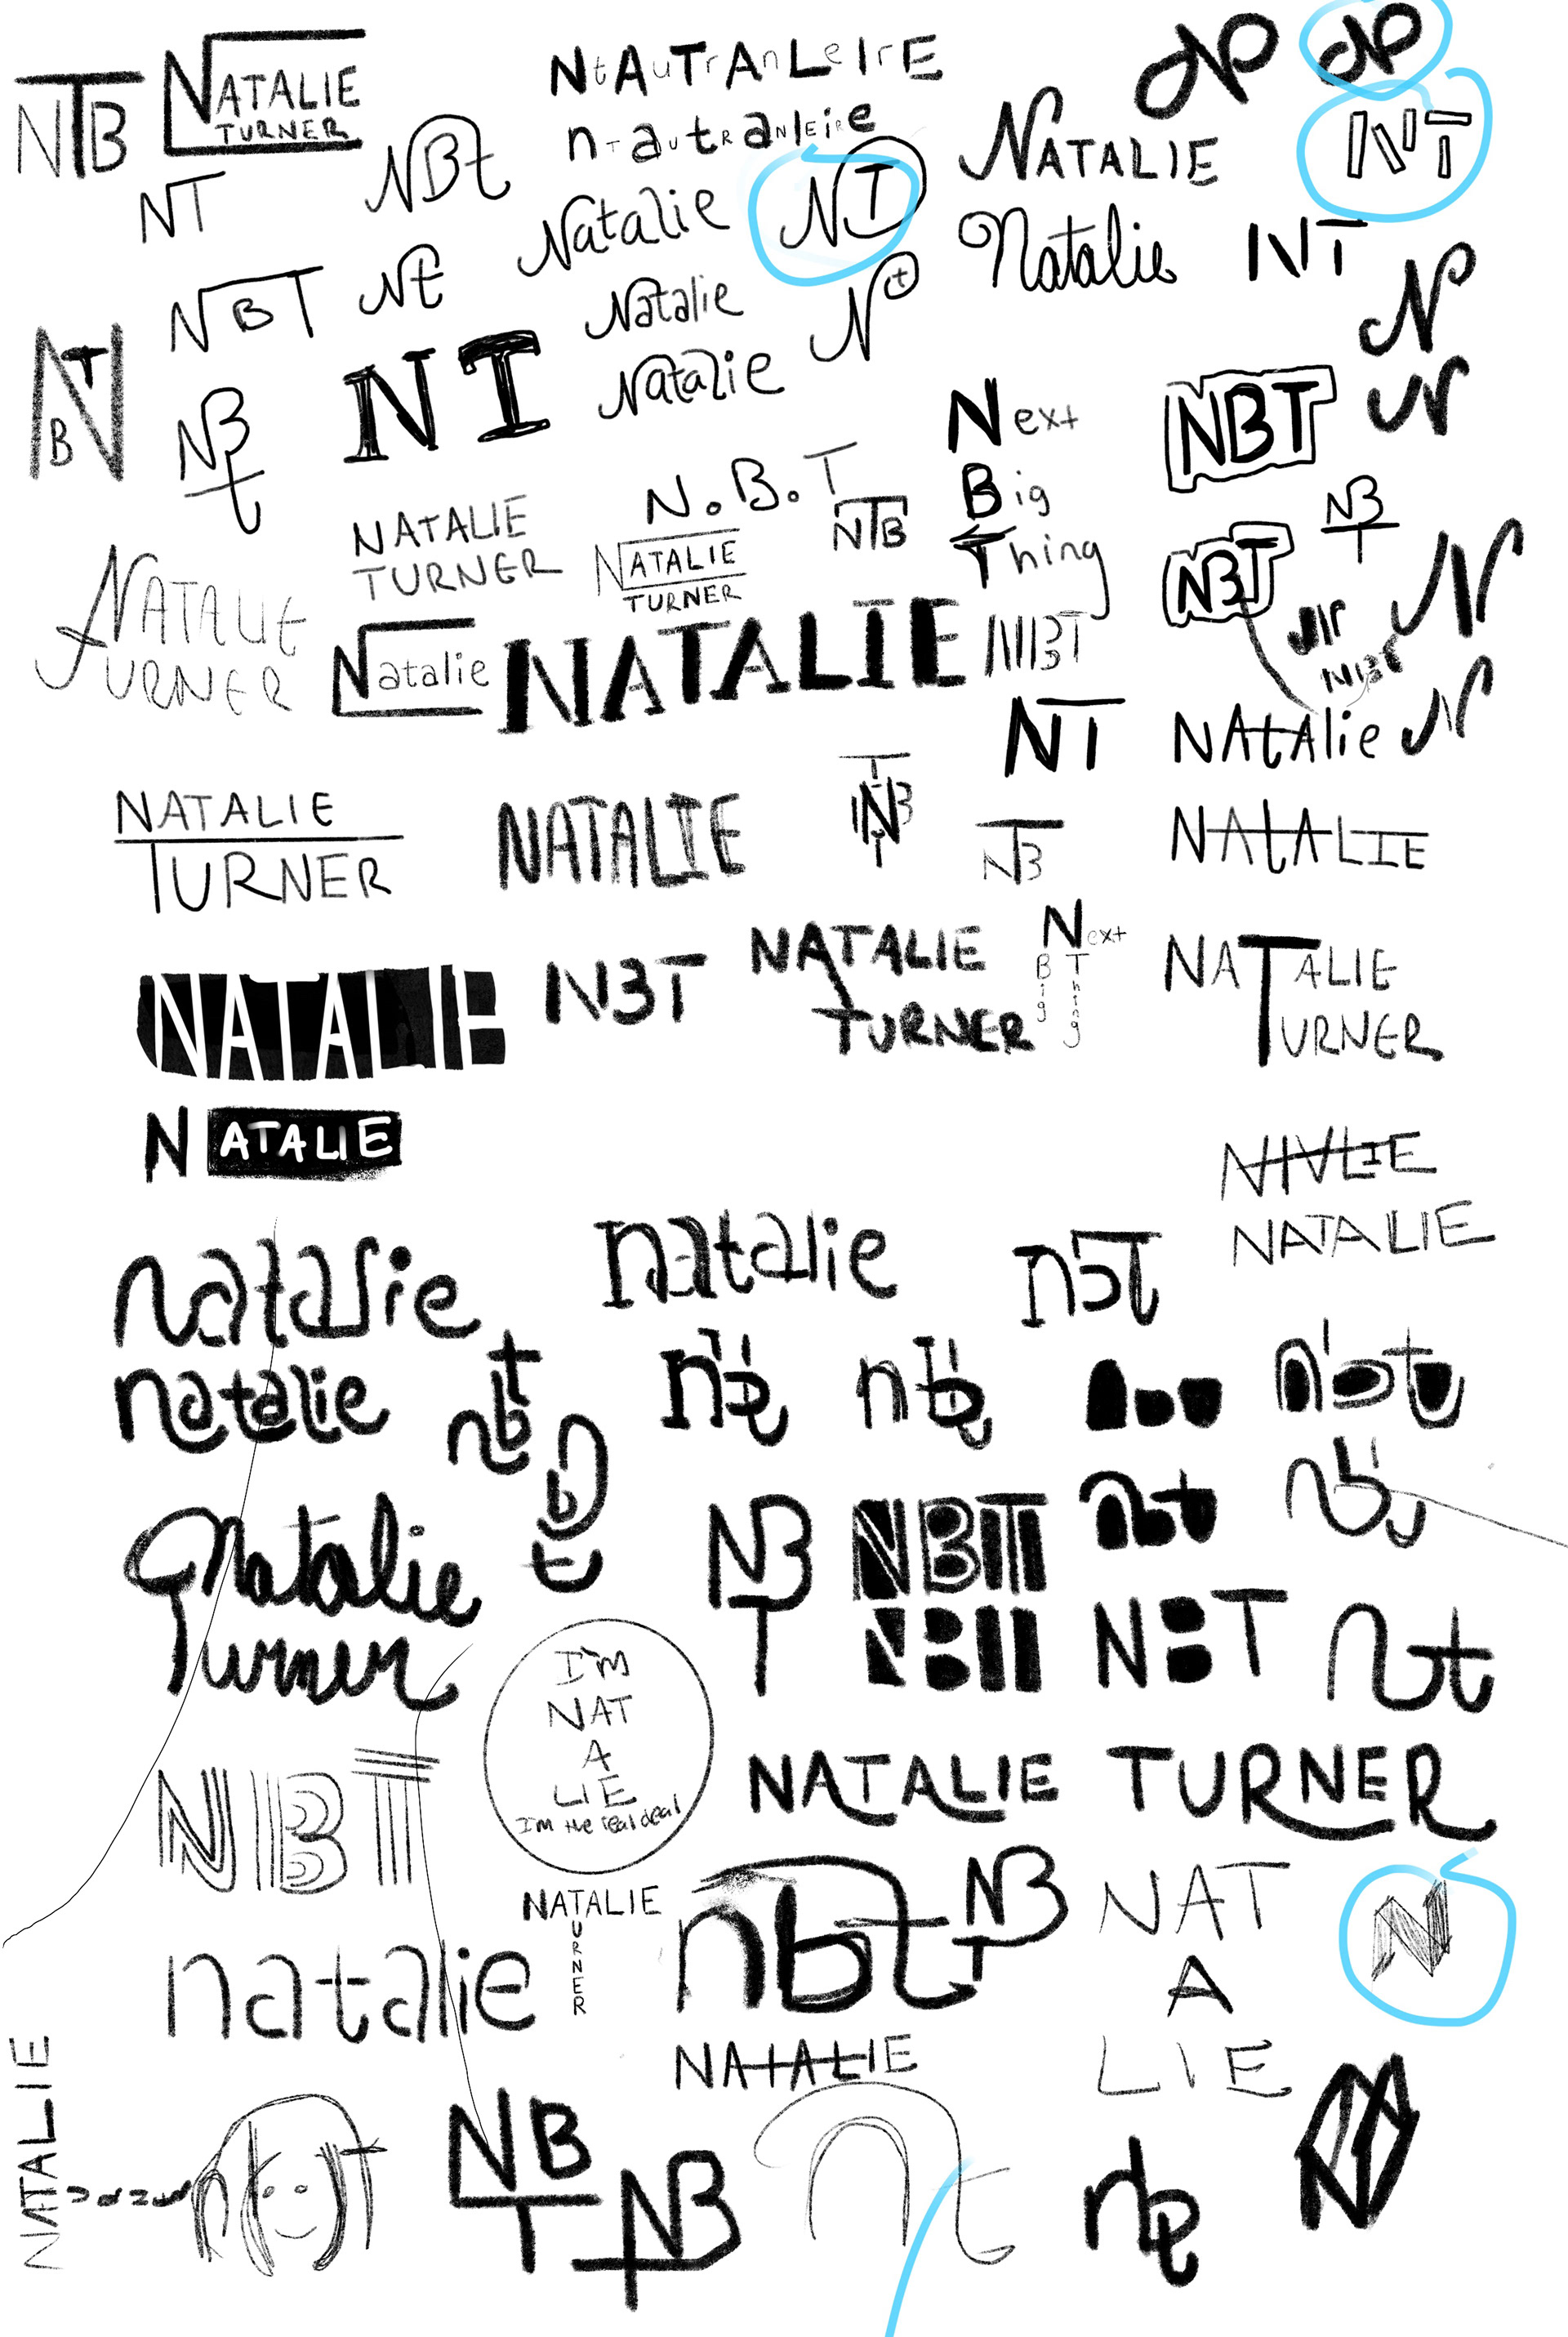 NTB
NATALIE
TURNER
NtAuTrAnLeIrE
nTaUtRaNlEiRe
NT
NBt
Natalie
NT
NATALIE
NT
Natalie
NT
N
NBT
Nt
Natalie
Nt
NTB
NBt
NT
Natalie
Next
Big
Thing
NBT
N
N.B.T
NTB
NBT
NATALIE
TURNER
NATALIE
TURNER
NBT
N
NATALIE
TURNER
Natalie
NATALIE
NBT
NBT
NT
NAtAlie
N
NATALIE
TURNER
NATALIE
NTB
NAtALIE
NATALIE
NBT
NATALIE
TURNER
Next
Big
Thing
NATALIE
TURNER
NATALIE
NATALIE
natalie
natalie
nbt
natalie
nbt
nbt
nbt
nbt
Natalie
Turner
nbt
NBT
NBT
nbt
NBT
NBT
nt
I'M
NAT
A
LIE
I'm the real deal
NATALIE TURNER
NBT
NATALIE
TURNER
nbt
NBT
NAT
A
LIE
N
natalie
NATALIE
NATALIE
NBT
NBT
nt
nbt
N